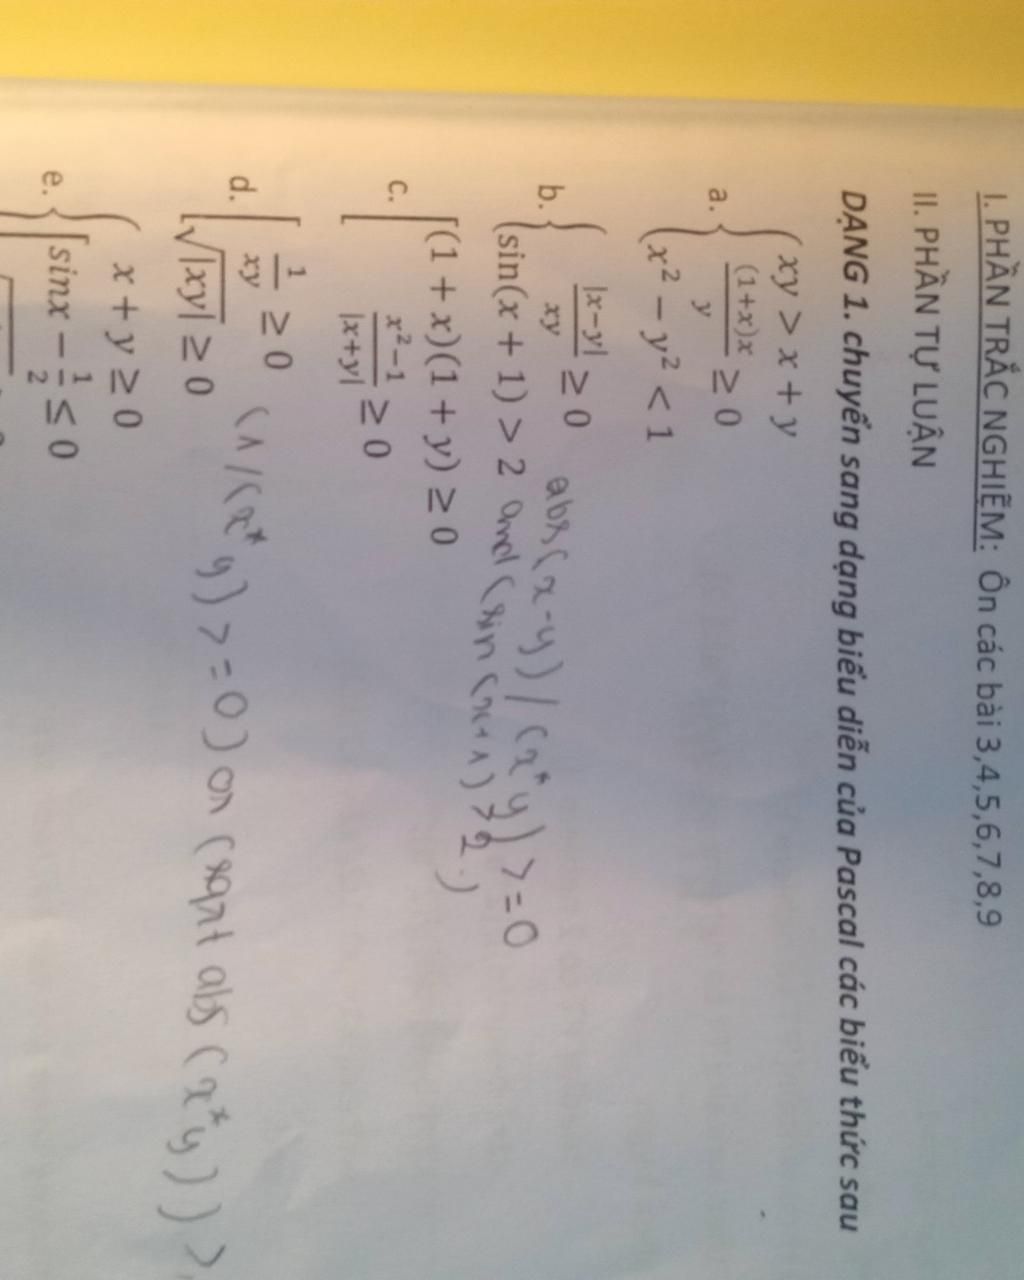 I. PHẦN TRẮC NGHIỆM: Ôn các bài 3,4,5,6,7,8,9
II. PHẦN TỰ LUẬN
DẠNG 1. chuyển sang dạng biểu diễn của Pascal các biểu thức sau
a. { xy > x + y
(1+x)x / y ≥ 0
x² − y² < 1
b. { |x−y| / xy ≥ 0 abs(x-y)/(x*y)>=0
sin(x + 1) > 2 and (sin(x+1)>2)
c. [ (1 + x)(1 + y) ≥ 0
x²−1 / |x+y| ≥ 0
d. [ 1 / xy ≥ 0 (1/(x*y)>=0) or (sqrt abs(x*y))>
√|xy| ≥ 0
e. { x + y ≥ 0
[ sinx − 1/2 ≤ 0